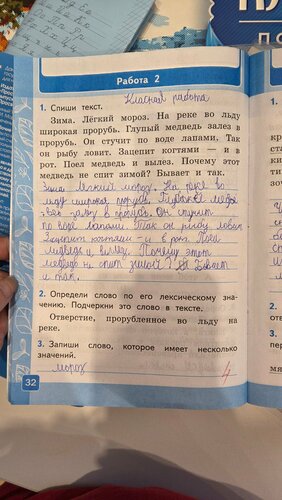 Работа 2
Классная работа
1. Спиши текст.
Зима. Лёгкий мороз. На реке во льду
широкая прорубь. Глупый медведь залез в
прорубь. Он стучит по воде лапами. Так
он рыбу ловит. Зацепит когтями — и в
рот. Поел медведь и вылез. Почему этот
медведь не спит зимой? Бывает и так.
Зима. Лёгкий мороз. На реке во
льду широкая прорубь. Глупый медве
залез в прорубь. Он стучит
по воде лапами. Так он рыбу ловит.
Зацепит когтями – и в рот. Поел
медведь и вылез. Почему этот
медведь не спит зимой? Бывает
и так.
2. Определи слово по его лексическому зна-
чению. Подчеркни это слово в тексте.
Отверстие, прорубленное во льду на
реке.
3. Запиши слово, которое имеет несколько
значений.
мороз
4
32